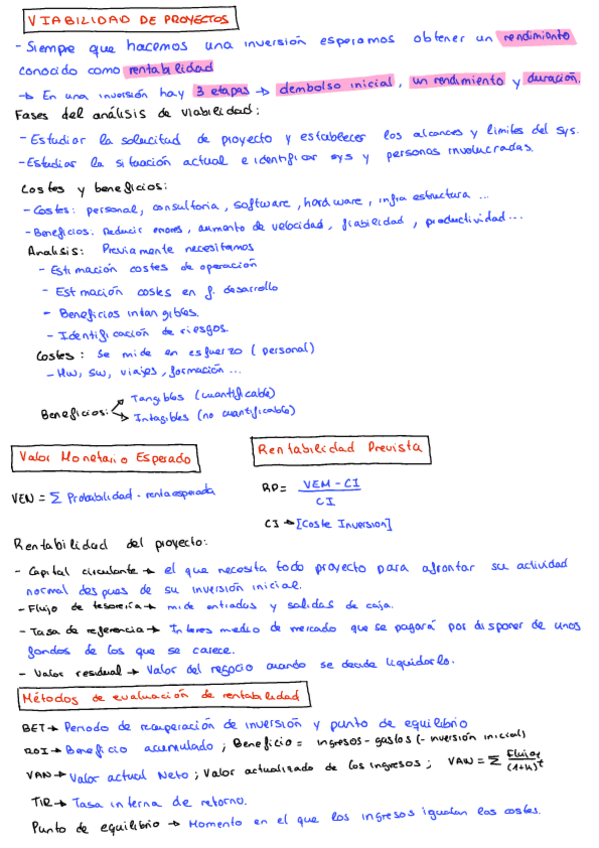 VIABILIDAD DE PROYECTOS
- Siempre que hacemos una inversión esperamos obtener un rendimiento
conocido como rentabilidad
→ En una inversión hay 3 etapas → dembolso inicial, un rendimiento y duración.
Fases del análisis de viabilidad:
- Estudiar la solicitud de proyecto y establecer los alcances y límites del sys.
- Estudiar la situación actual e identificar sys y personas involucradas.
Costes y beneficios:
- Costes: personal, consultoria, software, hardware, infra estructura ...
- Beneficios: Reducir errores, aumento de velocidad, fiabilidad, productividad...
Analisis: Previamente necesitamos
- Estimación costes de operación
- Estimación costes en f. desarrollo
- Beneficios intangibles.
- Identificación de riesgos.
Costes: Se mide en esfuerzo (personal)
- HW, SW, viajes, formación ...
Beneficios: Tangibles (cuantificable)
Intagibles (no cuantificable)
Valor Monetario Esperado
Rentabilidad Prevista
VEN = Σ Probabilidad · renta esperada
RP = VEM - CI / CI
CI → [Coste Inversion]
Rentabilidad del proyecto:
- Capital circulante → el que necesita todo proyecto para afrontar su actividad
normal despues de su inversión inicial.
- Flujo de tesorería → mide entradas y salidas de caja.
- Tasa de referencia → Interes medio de mercado que se pagará por disponer de unos
fondos de los que se carece.
- Valor residual → Valor del negocio cuando se decide liquidarlo.
Métodos de evaluación de rentabilidad
BET → Periodo de recuperación de inversión y punto de equilibrio
ROI → Beneficio acumulado; Beneficio = ingresos - gastos (- inversión inicial)
VAN → Valor actual Neto; Valor actualizado de los ingresos; VAN = Σ Flujo_t / (1+K)^t
TIR → Tasa interna de retorno.
Punto de equilibrio → Momento en el que los ingresos igualan los costes.